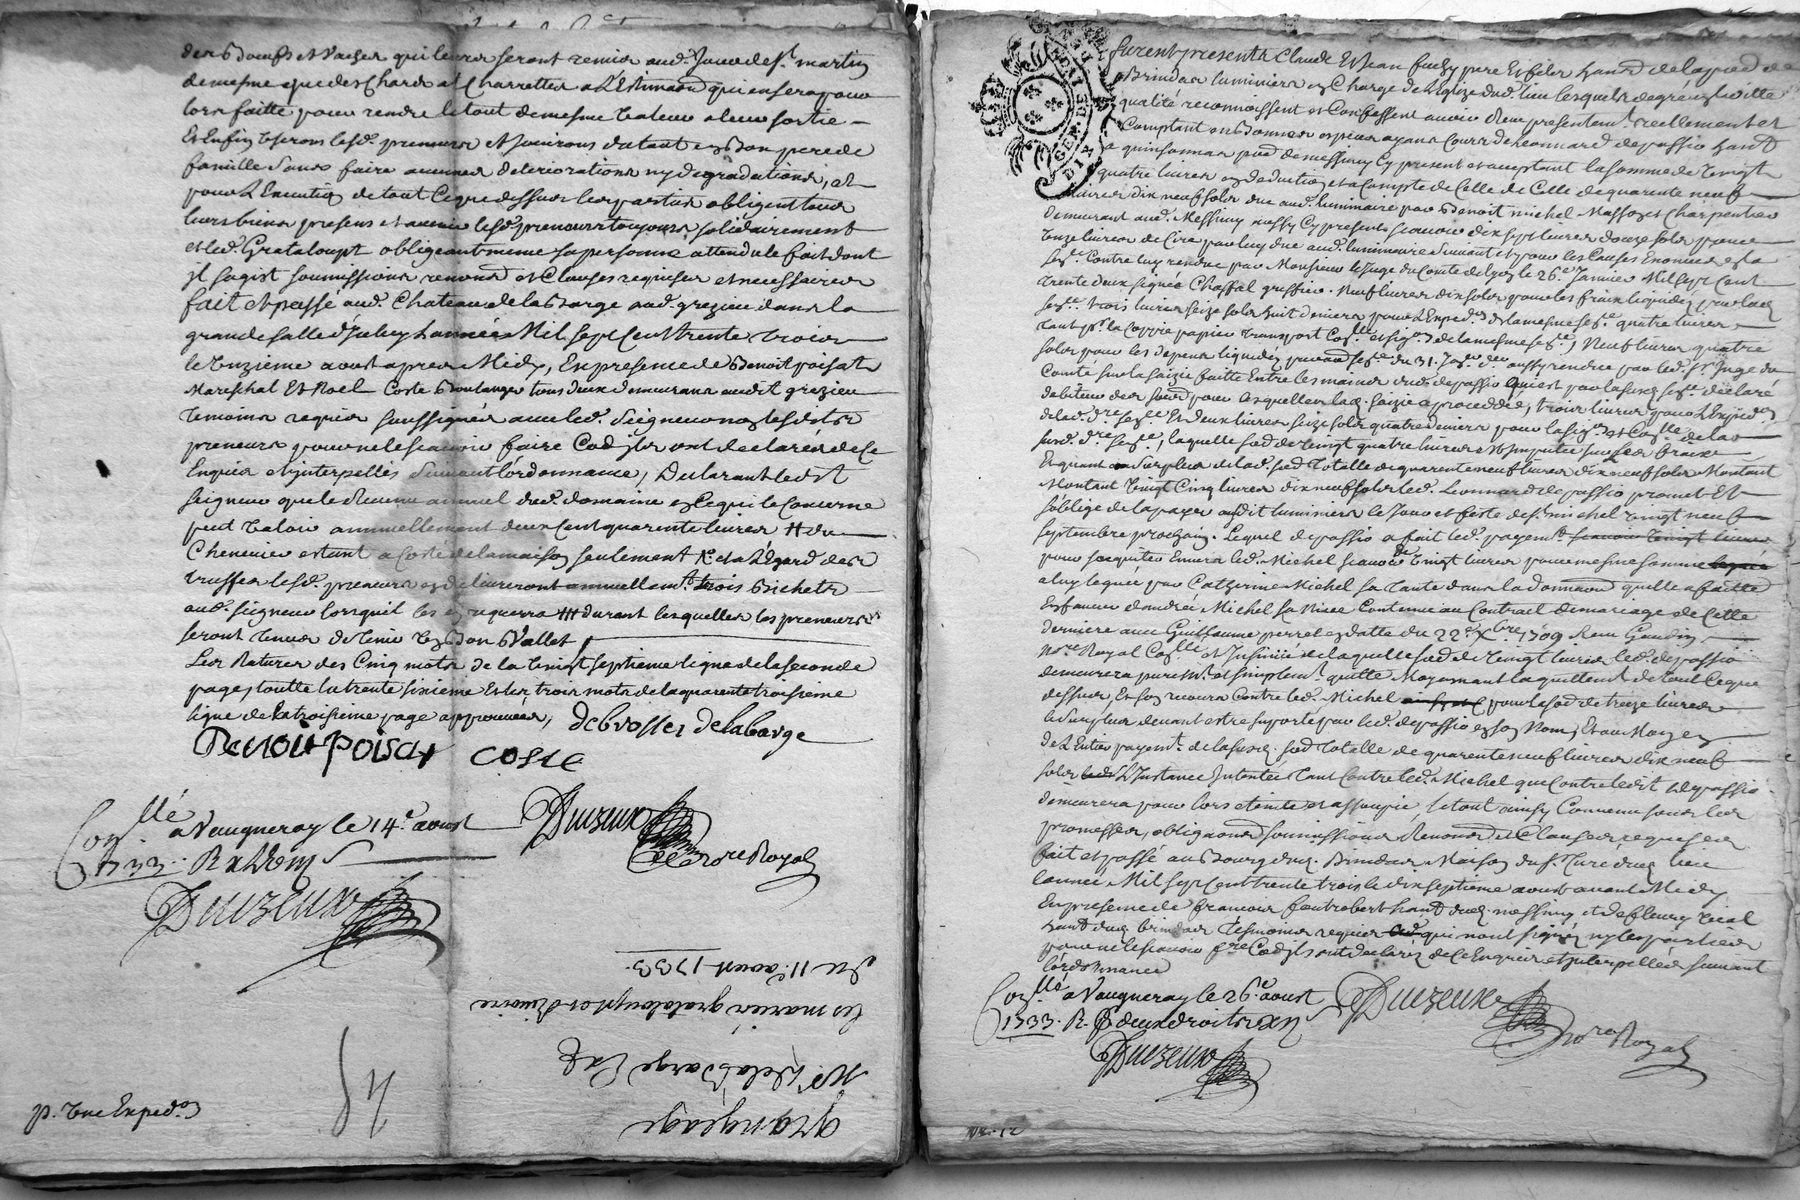 des Boeufs et Vaches qui leurs seront remis aud. Jour de St. martin
de mesme que des Chards et Charrettes a L'Estimaon qui en sera pour
lors faitte pour rendre le tout de mesme Valeur a leur sortie
Et Enfin Useront lesd. preneurs et Jouiront du tout en Bon pere de
famille sans faire aucunes deteriorations ny degradations, et
pour L'Execution de tout Ceque dessus les parties obligent tous
leurs biens presens et avenir lesd. preneurs toujours solidairement
et led. Grataloupt obligeant meme sa personne attendu le fait dont
Jl sagist soumissions renonons et Clauses requises et necessaires
fait et passé aud. Chateau de la Barge aud. grezieu dans la
grande salle d'Iceluy L'année Mil sept Cent trente trois
le Unzieme aoust apres Midy, En presence de Benoit poisat
Mareschal Et Noel Coste Boulanger tous deux demeurans audit grezieu
temoins requis soussignés avec led. Seigneur non lesdits
preneurs pour ne le scavoir faire Cod Jls ont declarés de Ce
Enquis et interpellés suivant l'ordonnance, Declarant ledit
seigneur que le Revenu annuel dud. domaine en Ce qui le Concerne
peut Valoir annuellement deux Cent quarente livres # du
Chenevier estant a Costé de la maison seulement
trusses lesd. preneurs en delivreront annuellemt. trois Bichets
aud. seigneur lorsquil les # durant lesquelles les preneurs
seront tenus de tenir Un Bon Vallet
Les Ratures des Cinq mots de la Vingt septieme ligne de la seconde
page, toutte la trente sixieme Et les trois mots de la quarente troisieme
ligne de la troisieme page approuvées, deBrosses de la barge
Benoit poisat COSTE
Con.llé a Vaugneray le 14e. aoust Duizeux
1733. R Nore Royal
Duizeux
du 11e. aoust 1733.
les mariés grataloupt et
Mr. De la Barge
Grangeage
p. Une Exped.on
GEN DE
DIX
furent presents Claude Et Jean pere Et fils hand. de la pard. de
Brindas luminiers en Charge de L'Eglise dud. lieu lesquels de gré en lad.
qualité reconnoissent et Confessent avoir Eu presentemt. reellement et
Comptant en Bonnes Especes ayans Cours de Leonnard depassio hand.
a quinsonnas pard. de messimy Cy present et acceptant la somme de Vingt
quatre livres en deduction et a Compte de Celle de Celle de quarente neuf
livres dix neuf sols due aud. luminaire par Benoit michel Masson et Charpentier
demeurant aud. Messimy aussy Cy present scavoir dix sept livres douze sols pour
Unze livres de Cire par luy due aud. luminaire suivant et pour les Causes Enoncées en la
sece. Contre luy rendue par Monsieur le Juge du Comté de Lyon le 26e. Janvier Mil sept Cent
trente deux signée Chaffal greffier. Neuf livres dix sols pour les fraix liquidés par lad.
sece. trois livres seize sols huit deniers pour L'Exped.on de la mesme sece. quatre livres
tant pr. la Coppie papier transport
sols pour les depens liquidés par aud. sece. du 31. aussy rendue par led. Sr. Juge du
Comté sur la saizie faitte Entre les mains dud. depassio qui est par lad. sece. declaré
debiteur des pour lesquelles lad. saizie a procedé, trois livres pour L'Exped.on
de lad. sece. Et deux livres seize sols quatre deniers pour la
laquelle sod. de Vingt quatre livres est Imputée sur les fraix
Et quant au surplus de lad. sod. totalle de quarente neuf livres dix neuf sols Montant
Montant Vingt Cinq livres dix neuf sols led. Leonnard depassio promet Et
s'oblige de la payer audit luminiers le Jour et feste de St. michel Vingt neuf
septembre prochain. Lequel depassio a fait led. payemt.
pour s'acquitter Envers led. Michel scavoir de Vingt livres pour mesme somme
a luy leguée par Catherine Michel sa Tante dans la donnaon quelle a faitte
En faveur d'andrée Michel sa Niece Contenue au Contrail de mariage de Cette
derniere avec Guillaume perret en datte du 22e. Xbre 1709 Receu Gaudin
Nore Royal et Insinué de laquelle sod. de Vingt livres led. depassio
demeurera purement et simplemt. quitte Moyennant laquittement de tout Ceque
dessus, Et son recours Contre led. Michel pour la sod. de treize livres
le surplus devant estre suporté par led. depassio en son Nom, Et au Moyen
de L'Entier payemt. de la susd. sod. totalle de quarente neuf livres dix neuf
sols L'Instance Intentée tant Contre led. Michel que Contre ledit depassio
demeurera pour lors eteinte et assoupie, le tout ainsy Convenu sous les
promesses, obligaons soumissions Renonons et Clauses requises
fait et passé au Bourg dud. Brindas Maison du Sr. Curé dud. lieu
l'année Mil sept Cent trente trois le dix septieme aoust avant Midy
En presence de francois hand. dud. messimy et de fleury
hand. dud. brindas tesmoins requis qui n'ont signés ny les parties
pour ne le scavoir fre. Cod Jls ont declarés de Ce Enquis et Interpellés suivant
l'ordonnance
Con.llé a Vaugneray le 26e. aoust Duizeux
1733. R. deux droits Nore Royal
Duizeux